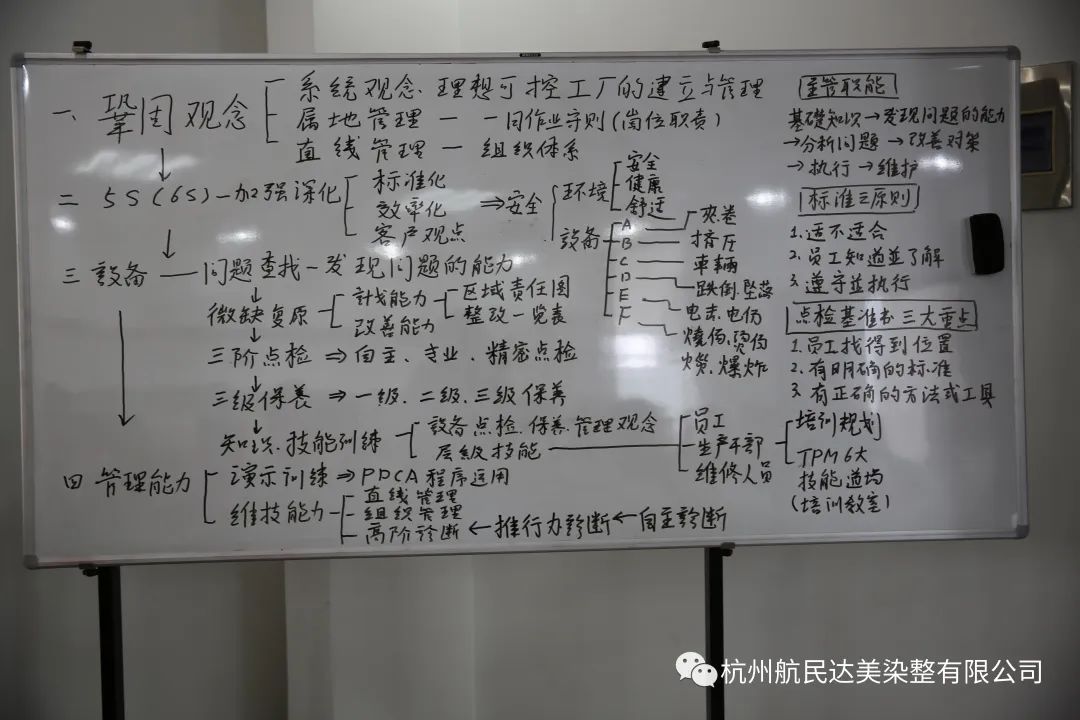 一、巩固观念
系统观念、理想可控工厂的建立与管理
属地管理 — 一同作业守则(岗位职责)
直线管理 — 组织体系
二 5S(6S)—加强深化
标准化
效率化
客户观点
⇒安全
环境
安全
健康
舒适
設备
A — 夾卷
B — 挤压
C — 車辆
D — 跌倒、坠落
E — 电击、电伤
F — 燒伤、烫伤
爆炸
三 設备 — 问题查找—发现问题的能力
微缺复原
計划能力
区域责任图
整改一览表
改善能力
三阶点检 ⇒ 自主、专业、精密点检
三级保养 ⇒ 一级、二级、三级保养
知识、技能训練
設备点检、保養、管理观念
层級技能
员工
生产干部
维修人员
培训规划
TPM6大
技能道场
(培训教室)
四 管理能力
演示训練 ⇒ PDCA程序运用
维技能力
直线管理
组织管理
高阶診断 ← 推行力診断 ← 自主診断
主管职能
基礎知识→发现问题的能力
→分析问题→改善对策
→执行→维护
标准三原则
1.适不适合
2.员工知道並了解
3.遵守並执行
点检基准书三大重点
1.员工找得到位置
2.有明确的标准
3.有正确的方法或工具
杭州航民达美染整有限公司